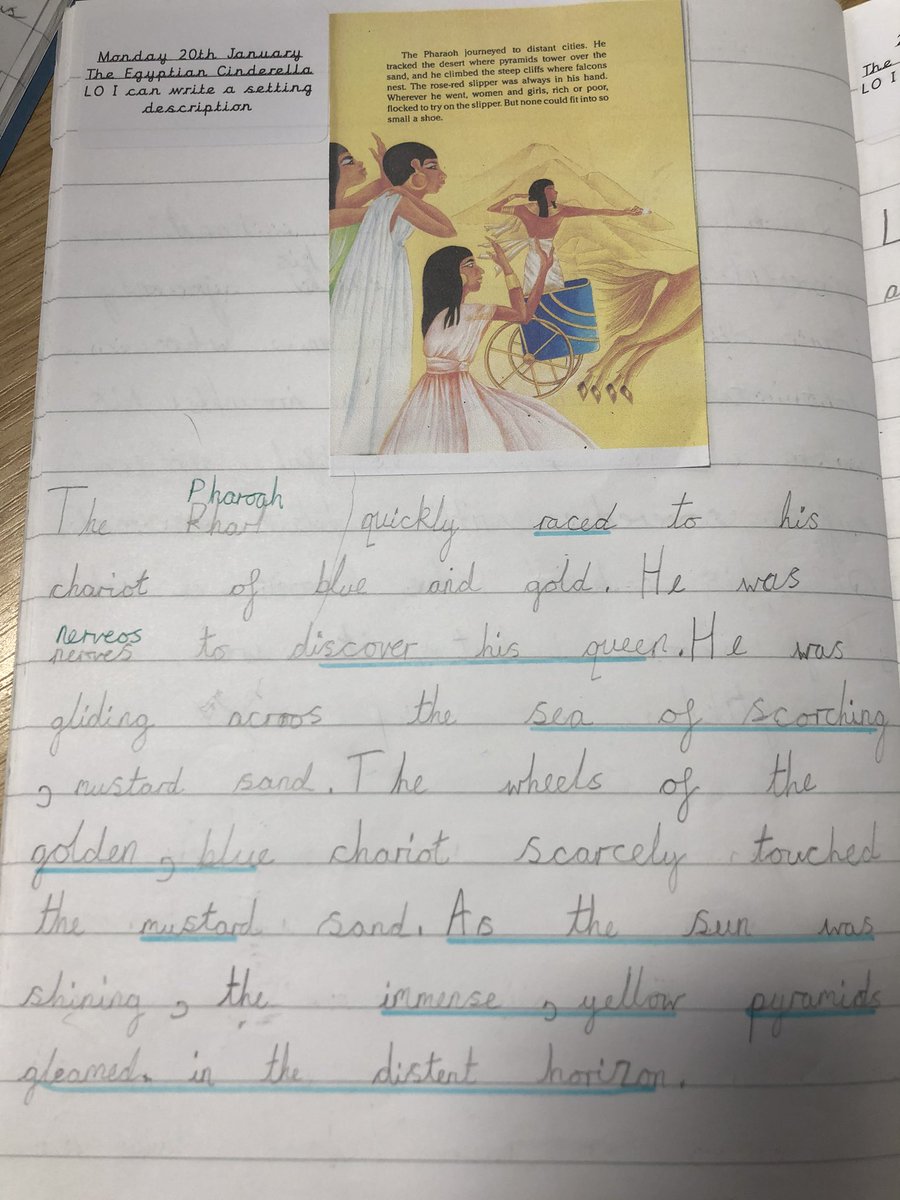 Monday 20th January
The Egyptian Cinderella
LO I can write a setting
description
The Pharaoh journeyed to distant cities. He
tracked the desert where pyramids tower over the
sand, and he climbed the steep cliffs where falcons
nest. The rose-red slipper was always in his hand.
Wherever he went, women and girls, rich or poor,
flocked to try on the slipper. But none could fit into so
small a shoe.
Pharoah
The quickly raced to his
chariot of blue and gold. He was
nerveos
nerves to discover his queen. He was
gliding acroos the sea of scorching
, mustard sand. The wheels of the
golden, blue chariot scarcely touched
the mustard sand. As the sun was
shining, the immense, yellow pyramids
gleamed. in the distent horizon.
The
LO I